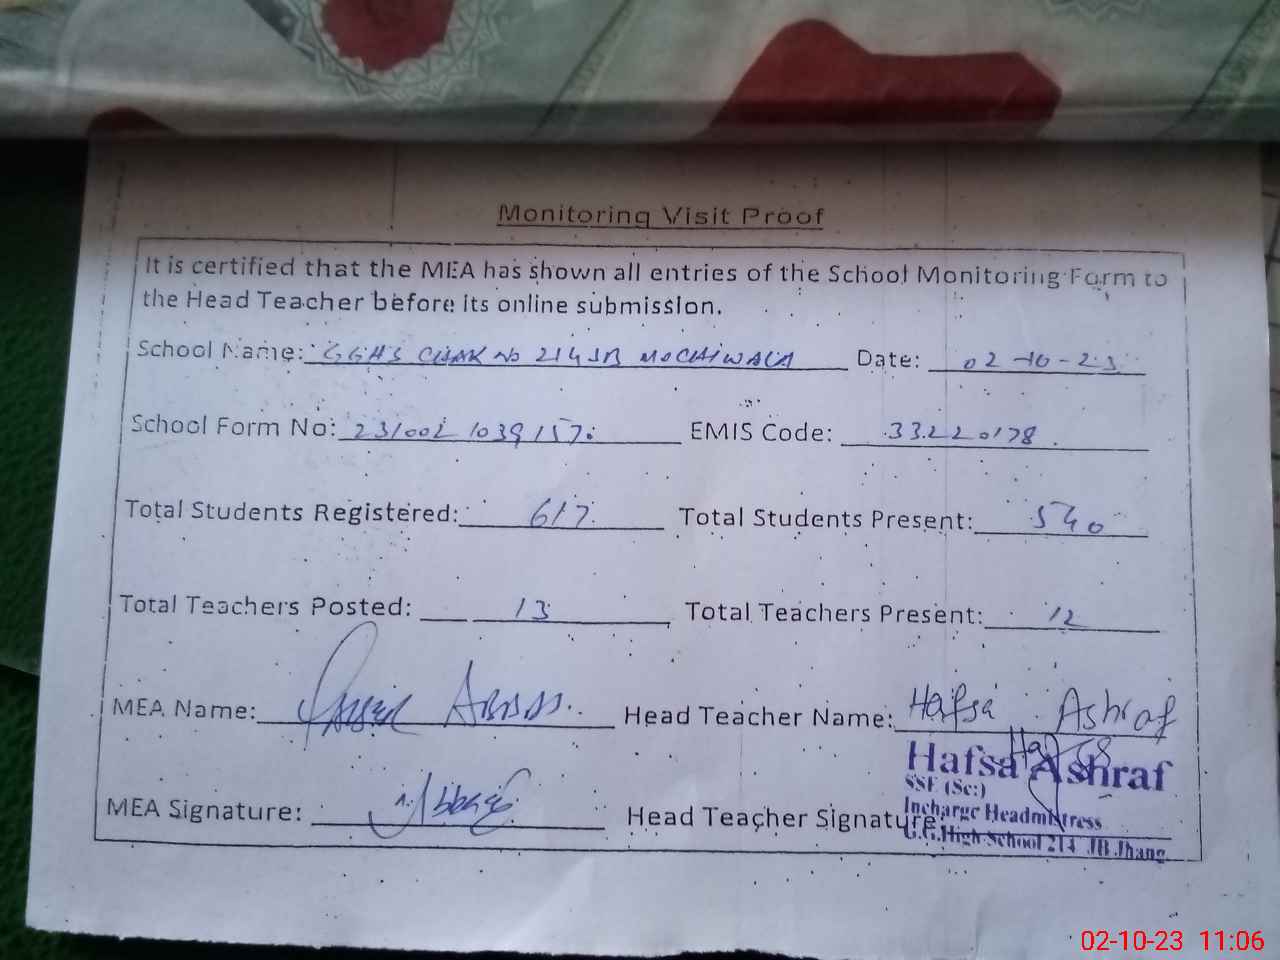 Monitoring Visit Proof
It is certified that the MEA has shown all entries of the School Monitoring Form to
the Head Teacher before its online submission.
School Name: GGHS CHAK NO 214 JB MOCHIWALA Date: 02-10-23
School Form No: 231002 1039157. EMIS Code: 33220178
Total Students Registered: 617 Total Students Present: 540
Total Teachers Posted: 13 Total Teachers Present: 12
MEA Name: Abbas. Head Teacher Name: Hafsa Ashraf
Hafsa Ashraf
SSE (Sc:)
MEA Signature: Head Teacher Signature:
Incharge Headmistress
G.G.High School 214 JB Jhang
02-10-23 11:06